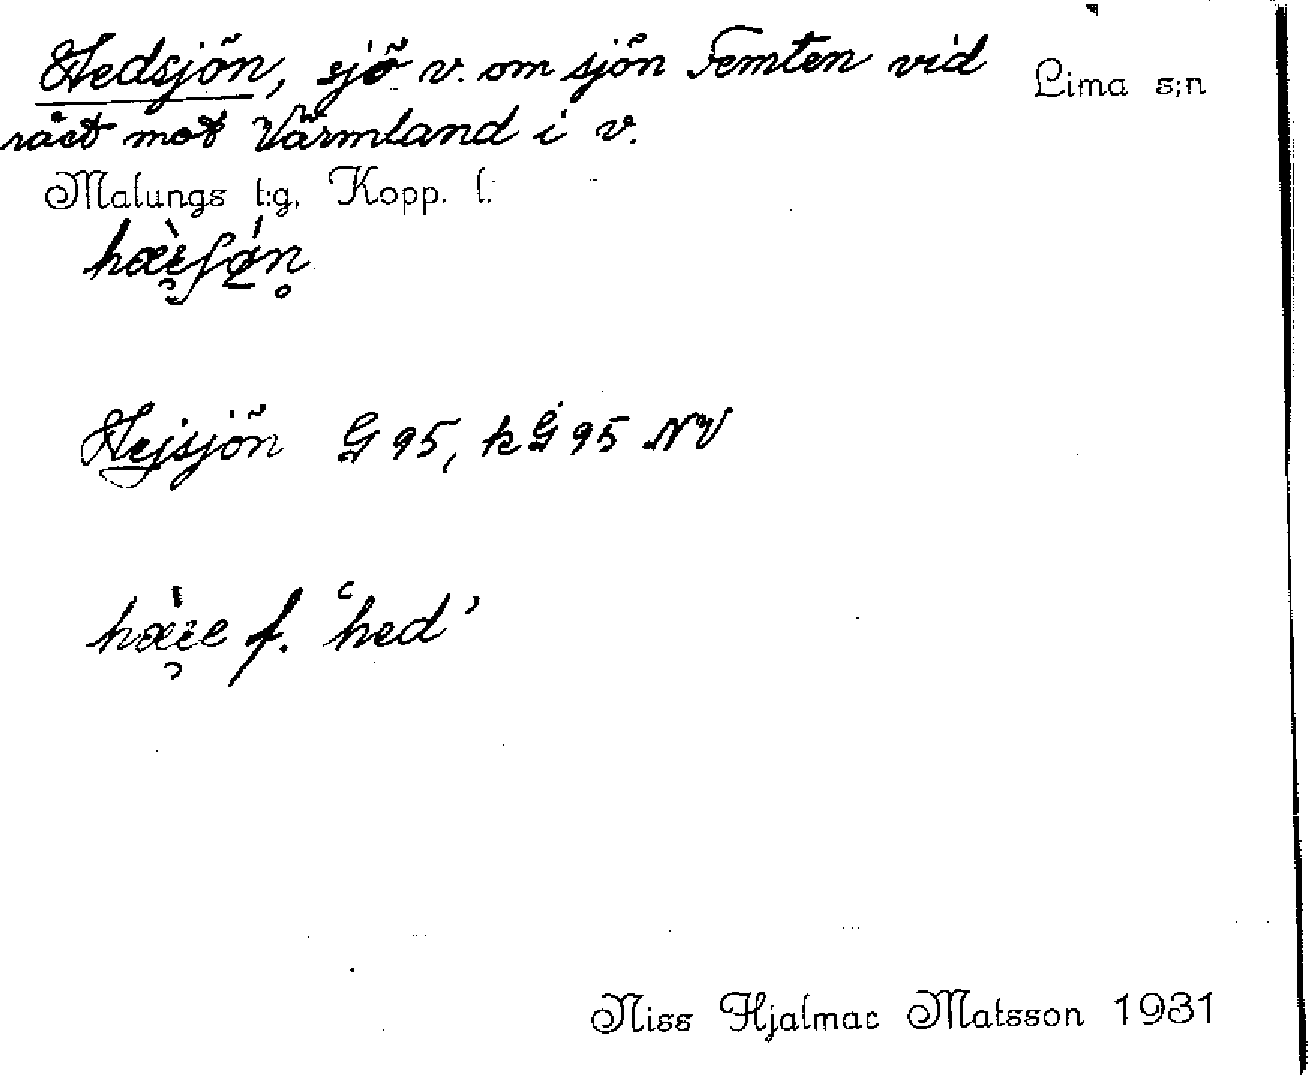 Hedsjön, sjö v. om sjön Femten vid
rået mot Värmland i v.
Lima s:n
Malungs t:g. Kopp. l.
Hejsjön G 95, k G 95 NV
f. 'hed'
Niss Hjalmar Matsson 1931